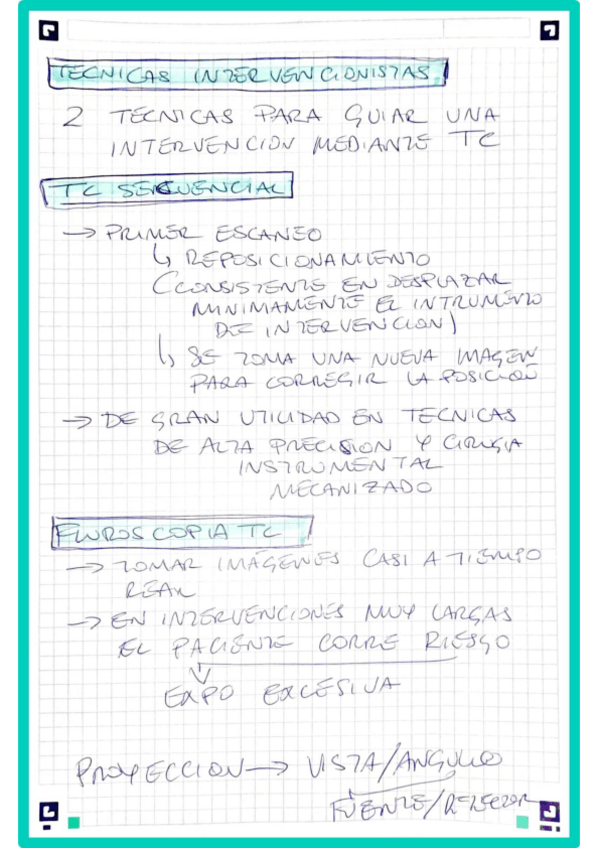 TECNICAS INTERVENCIONISTAS
2 TECNICAS PARA GUIAR UNA
INTERVENCION MEDIANTE TC
TC SECUENCIAL
→ PRIMER ESCANEO
↳ REPOSICIONAMIENTO
(CONSISTENTE EN DESPLAZAR
MINIMAMENTE EL INTRUMENTO
DE INTERVENCION)
↳ SE TOMA UNA NUEVA IMAGEN
PARA CORREGIR LA POSICIÓN
→ DE GRAN UTILIDAD EN TECNICAS
DE ALTA PRECISION Y CIRUGIA
INSTRUMENTAL
MECANIZADO
FLUROSCOPIA TC
→ TOMAR IMÁGENES CASI A TIEMPO
REAL
→ EN INTERVENCIONES MUY LARGAS
EL PACIENTE CORRE RIESGO
EXPO EXCESIVA
PROYECCION → VISTA/ANGULO
FUENTE/DETECTOR